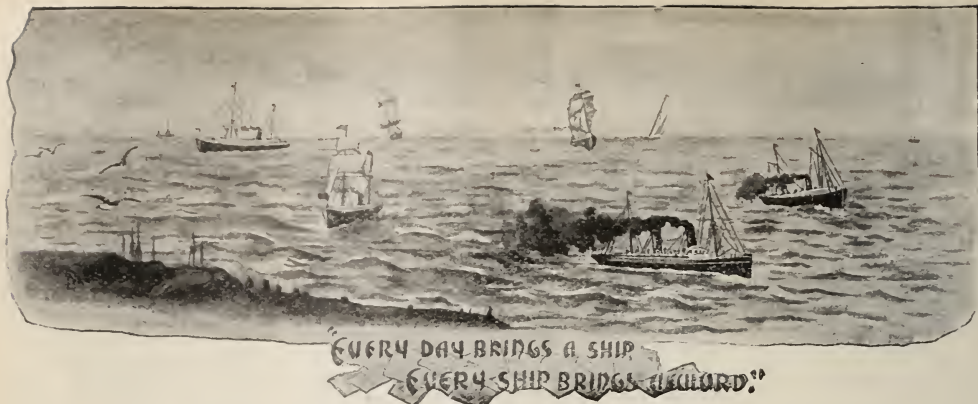 "EVERY DAY BRINGS A SHIP
EVERY SHIP BRINGS A WORD."